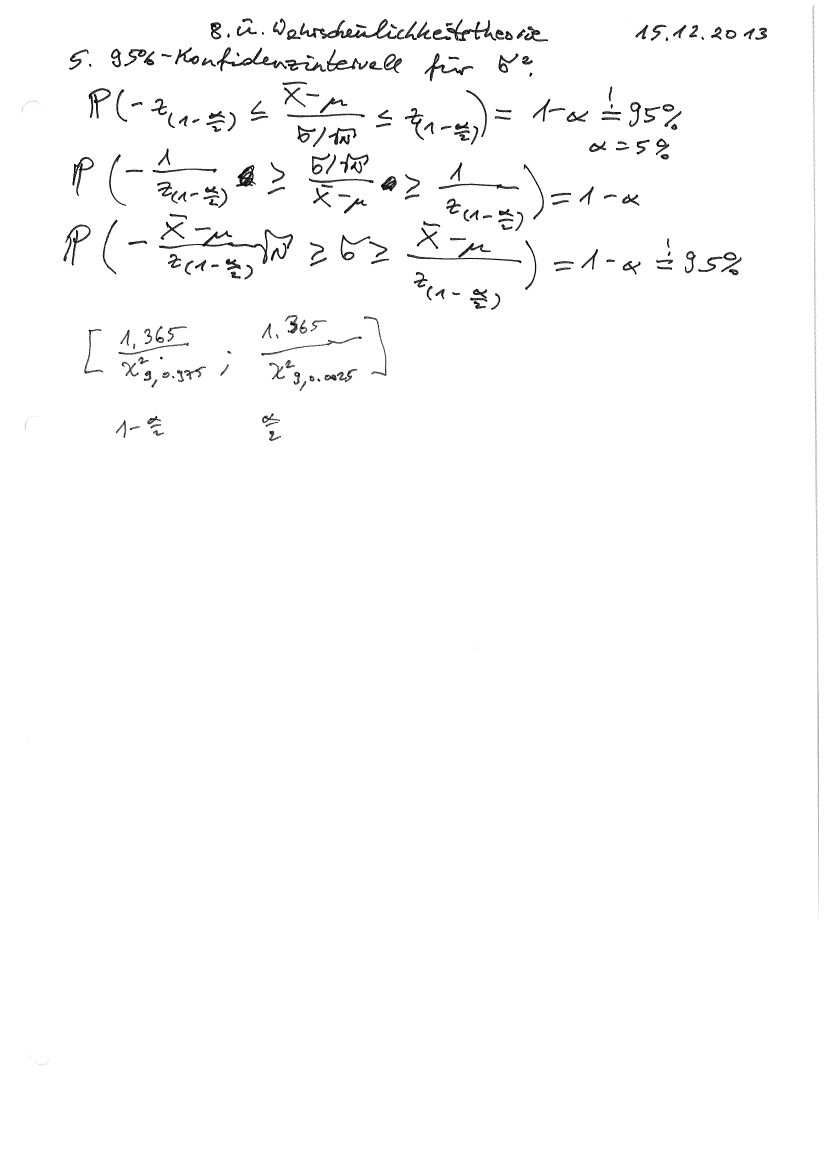 8. Ü. Wahrscheinlichkeitstheorie 15.12.2013
5. 95%-Konfidenzintervall für σ².
ℙ(-z_(1-α/2) ≤ (X̄-μ)/(σ/√N) ≤ z_(1-α/2)) = 1-α =! 95%
α = 5%
ℙ(-1/z_(1-α/2) ≥ (σ/√N)/(X̄-μ) ≥ 1/z_(1-α/2)) = 1-α
ℙ(-(X̄-μ)/z_(1-α/2) √N ≥ σ ≥ (X̄-μ)/z_(1-α/2)) = 1-α =! 95%
[1,365/χ²_9,0.975 ; 1.365/χ²_9,0.0025]
1-α/2 α/2